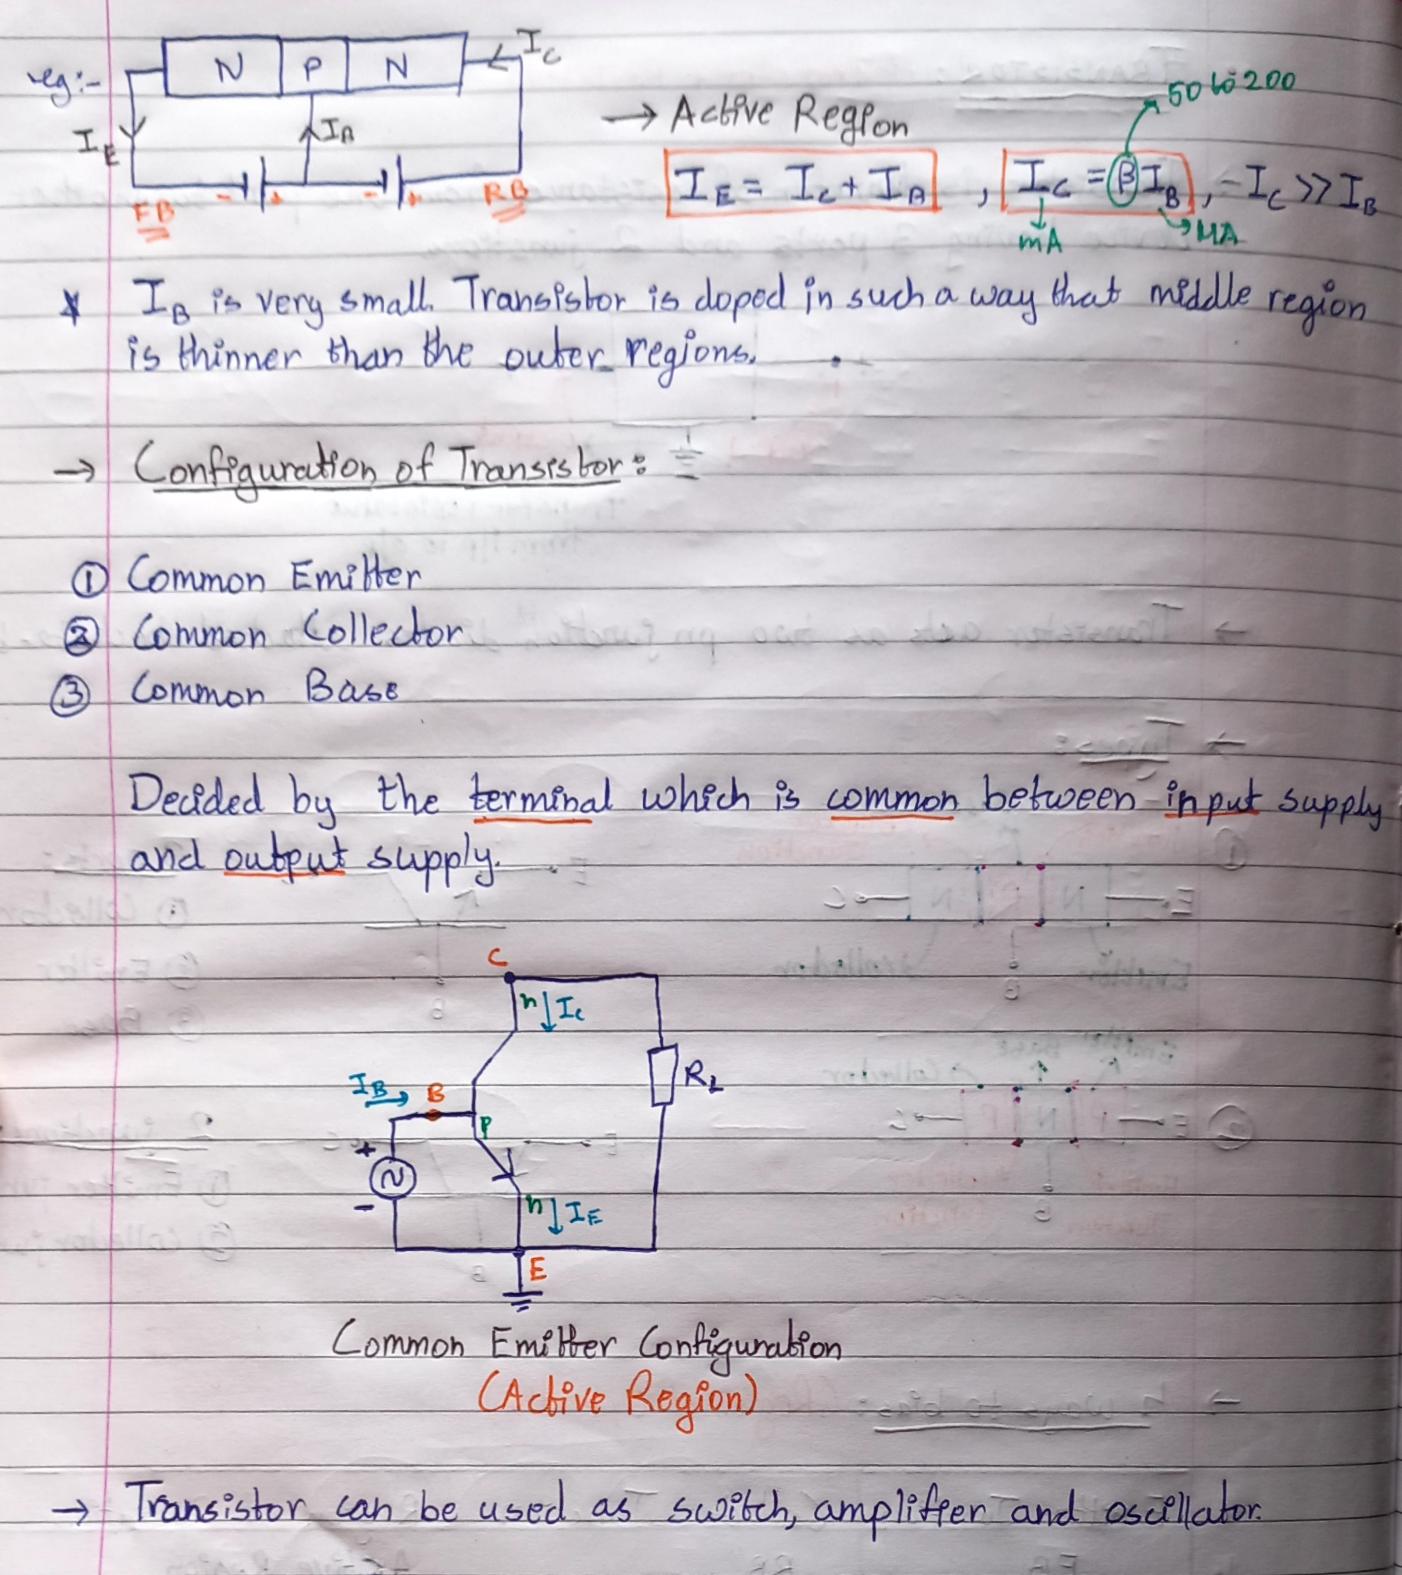 eg:-
N P N
I_C
I_E
I_B
- + - +
FB
RB
→ Active Region
50 to 200
I_E = I_C + I_B , I_C = β I_B , - I_C >> I_B
mA
μA
* I_B is very small. Transistor is doped in such a way that middle region
is thinner than the outer regions.
→ Configuration of Transistor:
① Common Emitter
② Common Collector
③ Common Base
Decided by the terminal which is common between input supply
and output supply.
C
n ↓ I_C
R_L
I_B → B
P
+
-
n ↓ I_E
E
Common Emitter Configuration
(Active Region)
→ Transistor can be used as switch, amplifier and oscillator.